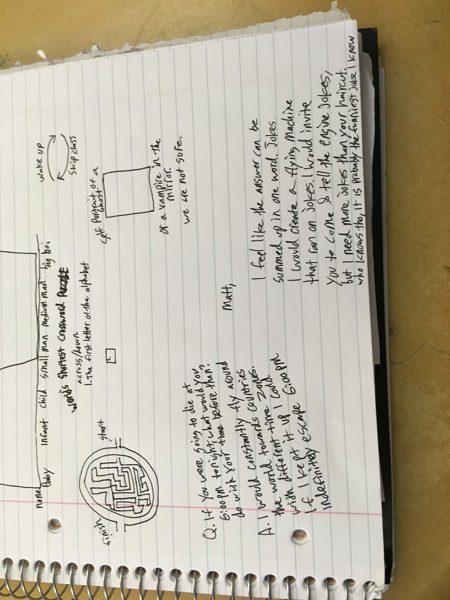 none
baby infant child small man medium man big boi
world's shortest crossword
across/down
1. the first letter of the alphabet
wake up
skip class
finish
start
self portrait of a
ghost
or a vampire in the
mirror.
we are not sure.
Q. If you were going to die at
6:00 pm tonight, what would you
do with your time before then.
A. I would constantly fly around
the world towards countries
with different time zones.
If I kept it up I could
indefinitely escape 6:00 pm
Matt,
I feel like the answer can be
summed up in one word. Jokes.
I would create a flying machine
that ran on jokes. I would invite
you to come & tell the engine jokes,
but I need more jokes than your haircut.
who knows tho, it is probably the funniest joke I know